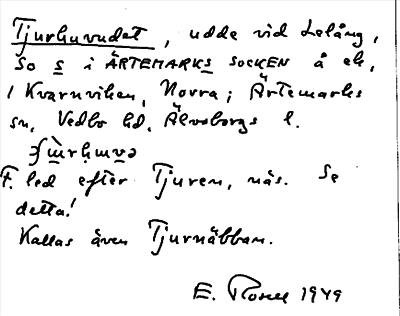 Tjurhuvudet, udde vid Lelång,
So s i ÄRTEMARKS SOCKEN å ek,
1 Kvarnviken, Norra; Ärtemarks
sn, Vedbo hd, Älvsborgs l.
F. led efter Tjuren, näs. Se
detta!
Kallas även Tjurnäbban.
E. Rosell 1949